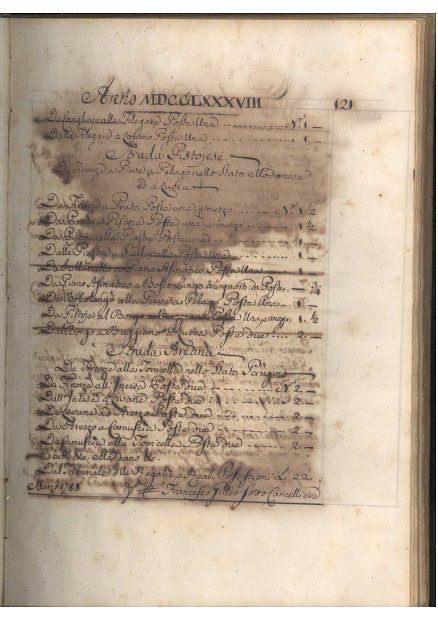 Anno MDCCLXXXVIII 121
alle Filegare Poste Una N.º 1
Dalle Filegare a Lojano Poste Una 1
Strada Pistojese
Da Firenze a Pieve a Pelago nello Stato Modanese
ed a Lucca
Da Firenze a Prato Poste una, e mezzo N.º 1 ½
Da Prato a Pistoja Poste una, e mezzo 1 ½
Da Pistoja alle Piastre Poste una 1
Dalle Piastre a Poste Una 1
a Piano Asinatico Poste Una 1
Da Piano Asinatico a Bosco Lungo tre quarti di Posta ¾
Da Bosco Lungo alla Pieve a Pelago Posta Una 1
Da Pistoja al Borgo Poste Una, e mezzo 1 ½
Dal Borgo a Poste due 2
Strada Aretina
Da Firenze alla Torricella nello Stato Perugino
Da Firenze all' Incisa Poste due N. 2
Dall' Incisa a Levane Poste due 2
Da Levane ad Arezzo Poste due 2
Da Arezzo a Camuscia Poste due 2
Da Camuscia alla Torricella Poste due 2
E tutto &c. Mandano &c.
Dal Tribunale delle Regalie, e Reali Possessioni Li 22
Marzo 1788
Francesco Sotto Cancelliere